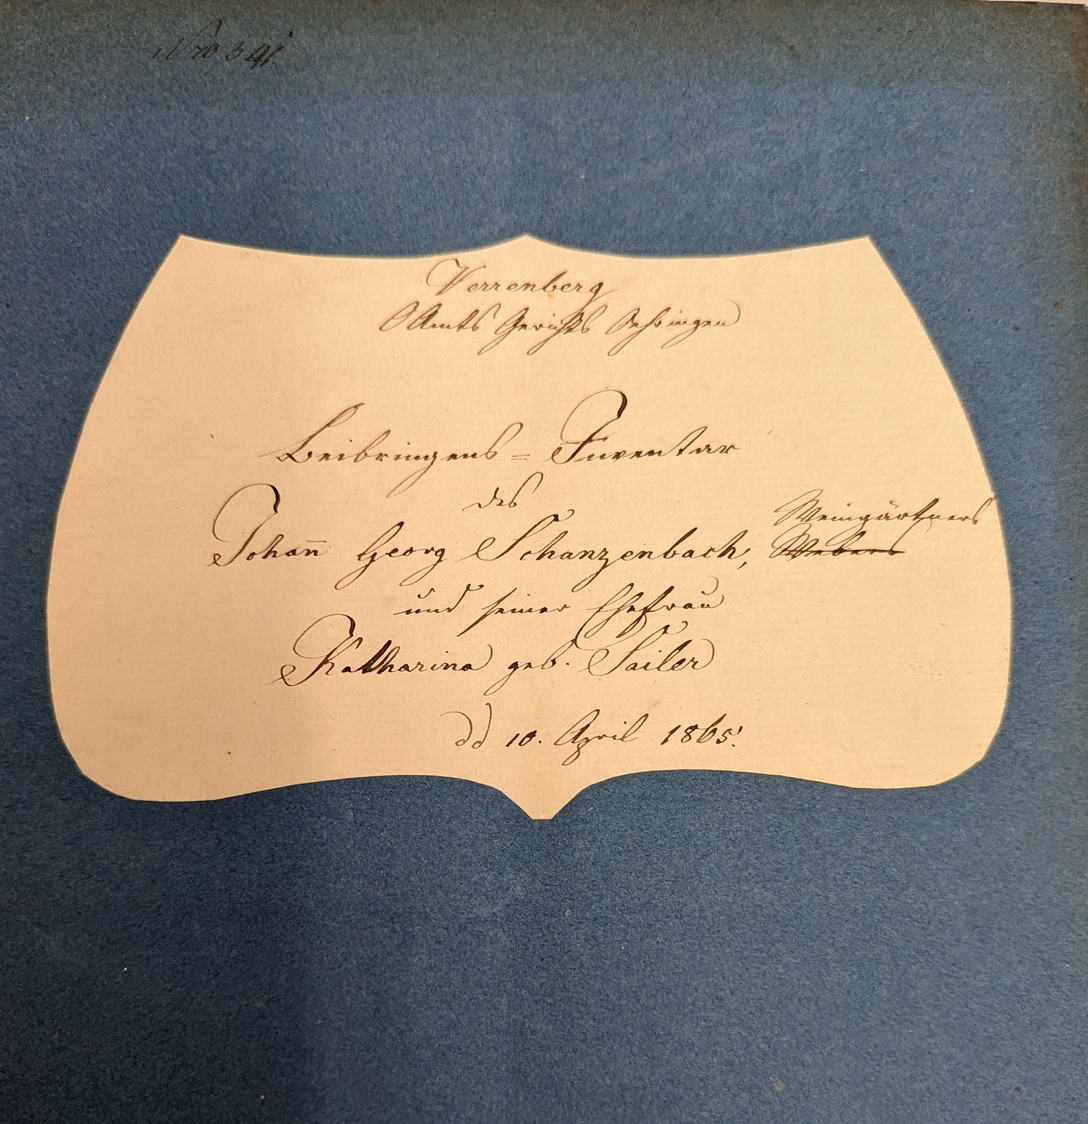 Nro 341
Verrenberg
OAmts Gerichts Oehringen
Beibringens = Inventar
des
Weingärtners
Johan̅ Georg Schanzenbach, Webers
und seiner Ehefrau
Katharina geb. Sailer
dd 10. April 1865.